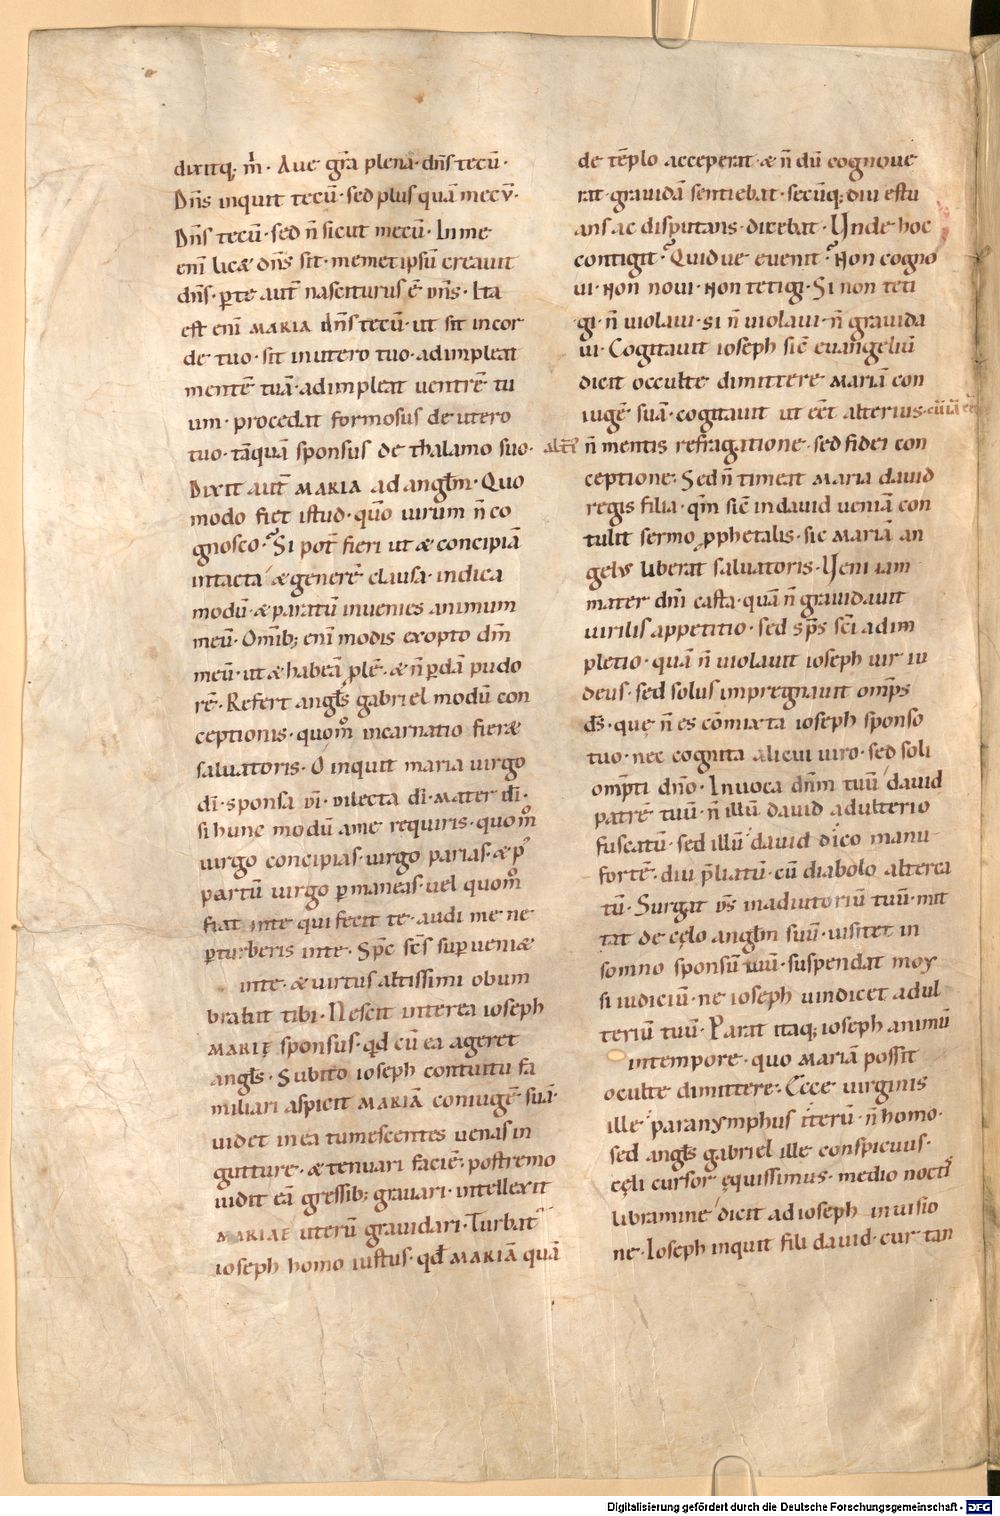 dixitq; m̄. Aue grā plena. dn̄s tecū.
Dn̄s inquit tecū. sed plus quā mecū.
Dn̄s tecū. sed n̄ sicut mecū. In me
eni̅ licæ dn̄s sit. memetipsū creauit
dn̄s. ꝑ te aut̄ nasciturus ē dn̄s. Ita
est eni̅ MARIA dn̄s tecū. ut sit in cor
de tuo. sit in utero tuo. adimpleat
mentē tuā. adimpleat uentrē tu
um. procedat formosus de utero
tuo. tāquā sponsus de thalamo suo.
Dixit aut̄ MARIA ad angłm. Quo
modo fiet istud. quo̅ uirum n̄ co
gnosco. Si pot̄ fieri ut & concipiā
intacta & generē clausa. indica
modū. & paratū inuenies animum
meū. Omīb; eni̅ modis exopto dm̄
meū. ut & habeā ꝓlē. & n̄ ꝑdā pudo
rē. Refert angłs gabriel modū con
ceptionis. quom̊ incarnatio fieræ
saluatoris. O inquit maria uirgo
di̅. sponsa di̅. dilecta di̅. mater di̅.
si hunc modū a me requiris. quom̊
uirgo concipias. uirgo parias. & p'
partū uirgo ꝑmaneas. uel quom̊
fiat in te qui fecit te. audi me ne
ꝑturberis in te. Sp̄c sc̄s suꝑueniæ
in te. & uirtus altissimi obum
brabit tibi. Nescit interea ioseph
MARIĘ sponsus. qđ cū ea ageret
angłs. Subito ioseph contuitu fa
miliari aspicit MARIĀ coniugē suā.
uidet in ea tumescentes uenas in
gutture. & tenuari faciē. postremo
uidit eā gressib; grauari. intellexit
MARIAE uterū grauidari. Turbat̄
ioseph homo iustus. qđ MARIĀ quā
de tēplo acceperat & n̄ dū cognoue
rat. grauidā sentiebat. secūq; diu estu
ans ac disputans. dicebat. Unde hoc
contigit? Quid ue euenit? Non cogno
ui. Non noui. Non tetigi. Si non teti
gi. n̄ uiolaui. si n̄ uiolaui. n̄ grauida
ui. Cogitauit ioseph sic̄ euangeliū
dicit occulte dimittere MARIĀ con
iugē suā. cogitauit ut eēt alterius.
n̄ mentis refragatione. sed fidei con
ceptione. Sed n̄ timeat MARIA dauid
regis filia. qm̄ sic̄ in dauid ueniā con
tulit sermo ꝓphetalis. sic MARIĀ an
gelus liberat saluatoris. Ueni iam
mater dn̄i casta. quā n̄ grauidauit
uirilis appetitio. sed sp̄s sc̄i adim
pletio. quā n̄ uiolauit ioseph uir iu
deus. sed solus impregnauit omp̄s
ds̄. que n̄ es cōmixta ioseph sponso
tuo. nec cognita alicui uiro. sed soli
omp̄ti dn̄o. Inuoca dn̄m tuū dauid
patrē tuū. n̄ illū dauid adulterio
fuscatū. sed illū dauid dico manu
fortē. diu p̄liatū. cū diabolo alterca
tū. Surgat ds̄ in adiutoriū tuū. mit
tat de cęlo angłm suū. uisitet in
somno sponsū tuū. suspendat mox
si iudiciū. ne ioseph uindicet adul
teriū tuū. Parat itaq; ioseph animū
in tempore. quo MARIĀ possit
oculte dimittere. Ecce uirginis
ille paranymphus iterū. n̄ homo.
sed angłs gabriel ille conspicuus.
cęli cursor ęquissimus. medio noctis
libramine dicit ad ioseph in uisio
ne. Ioseph inquit fili dauid. cur tan
Digitalisierung gefördert durch die Deutsche Forschungsgemeinschaft - DFG